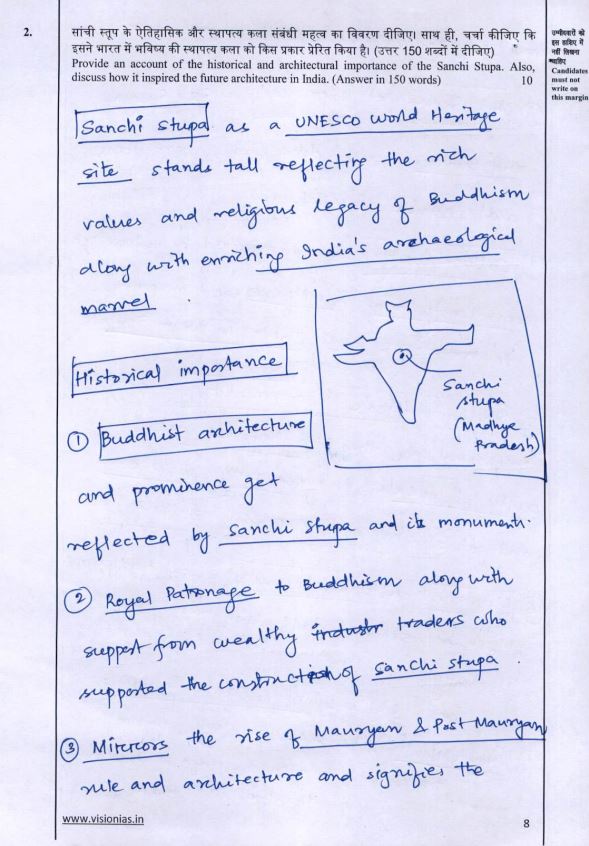 2.
सांची स्तूप के ऐतिहासिक और स्थापत्य कला संबंधी महत्व का विवरण दीजिए। साथ ही, चर्चा कीजिए कि
इसने भारत में भविष्य की स्थापत्य कला को किस प्रकार प्रेरित किया है। (उत्तर 150 शब्दों में दीजिए)
Provide an account of the historical and architectural importance of the Sanchi Stupa. Also,
discuss how it inspired the future architecture in India. (Answer in 150 words) 10
उम्मीदवारों को
इस हाशिए में
नहीं लिखना
चाहिए
Candidates
must not
write on
this margin
Sanchi stupa as a UNESCO World Heritage
site stands tall reflecting the rich
values and religious legacy of Buddhism
along with enriching India's archaeological
marvel
Sanchi
stupa
(Madhye
Pradesh)
Historical importance
① Buddhist architecture
and prominence get
reflected by Sanchi stupa and its monuments.
② Royal Patronage to Buddhism along with
support from wealthy traders who
supported the construction of Sanchi stupa.
③ Mirrors the rise of Mauryan & Post Mauryan
rule and architecture and signifies the
www.visionias.in
8